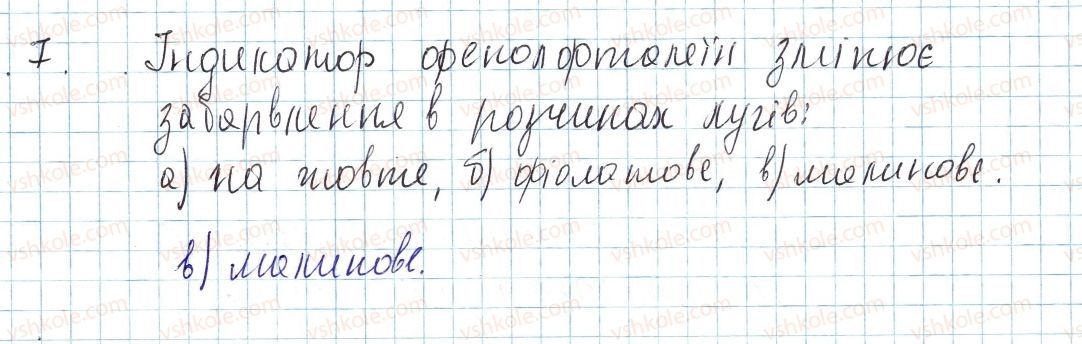 7. Індикатор фенолфталеїн змінює
забарвлення в розчинах лугів:
а) на жовте, б) фіолатове, в) малинове.
в) малинове.
vshkole.com